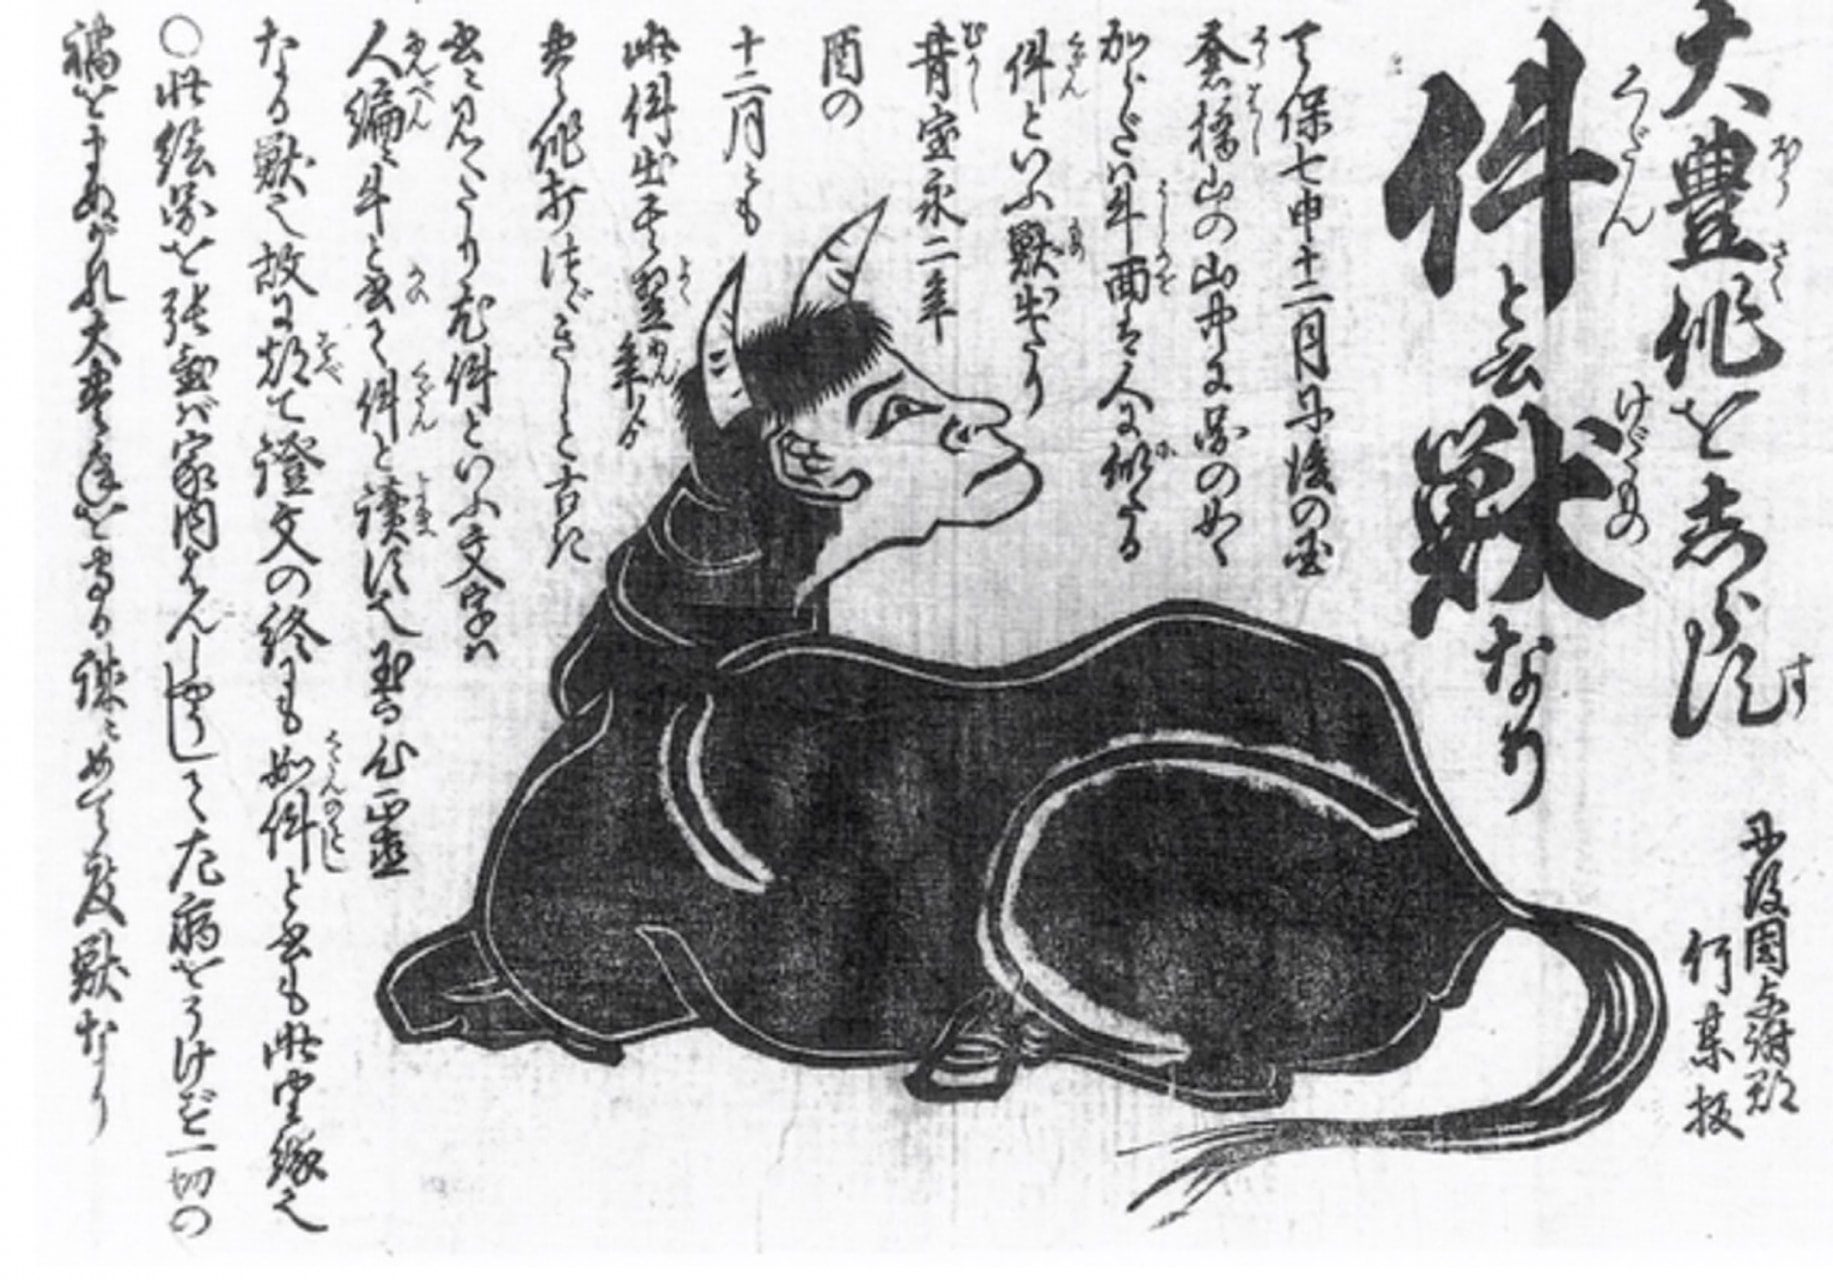 大豊作を志らす
件と云獣なり
丹後国与謝郡
何某板
天保七申十二月丹後の国
倉橋山の山中に図の如く
からだハ牛面は人に似たる
件といふ獣出たり
昔宝永二年
酉の
十二月にも
此件出て翌年より
豊作打つゞきしこと古き
書に見へたり尤件といふ文字ハ
人偏に牛と書て件と讀す也至て心正直
なる獣之故に都て證文の終にも如件と書も此由縁之
〇此絵図を張置バ家内はんしやうして厄病をうけず一切の
禍をまぬがれ大豊年となる誠にめで度獣なり